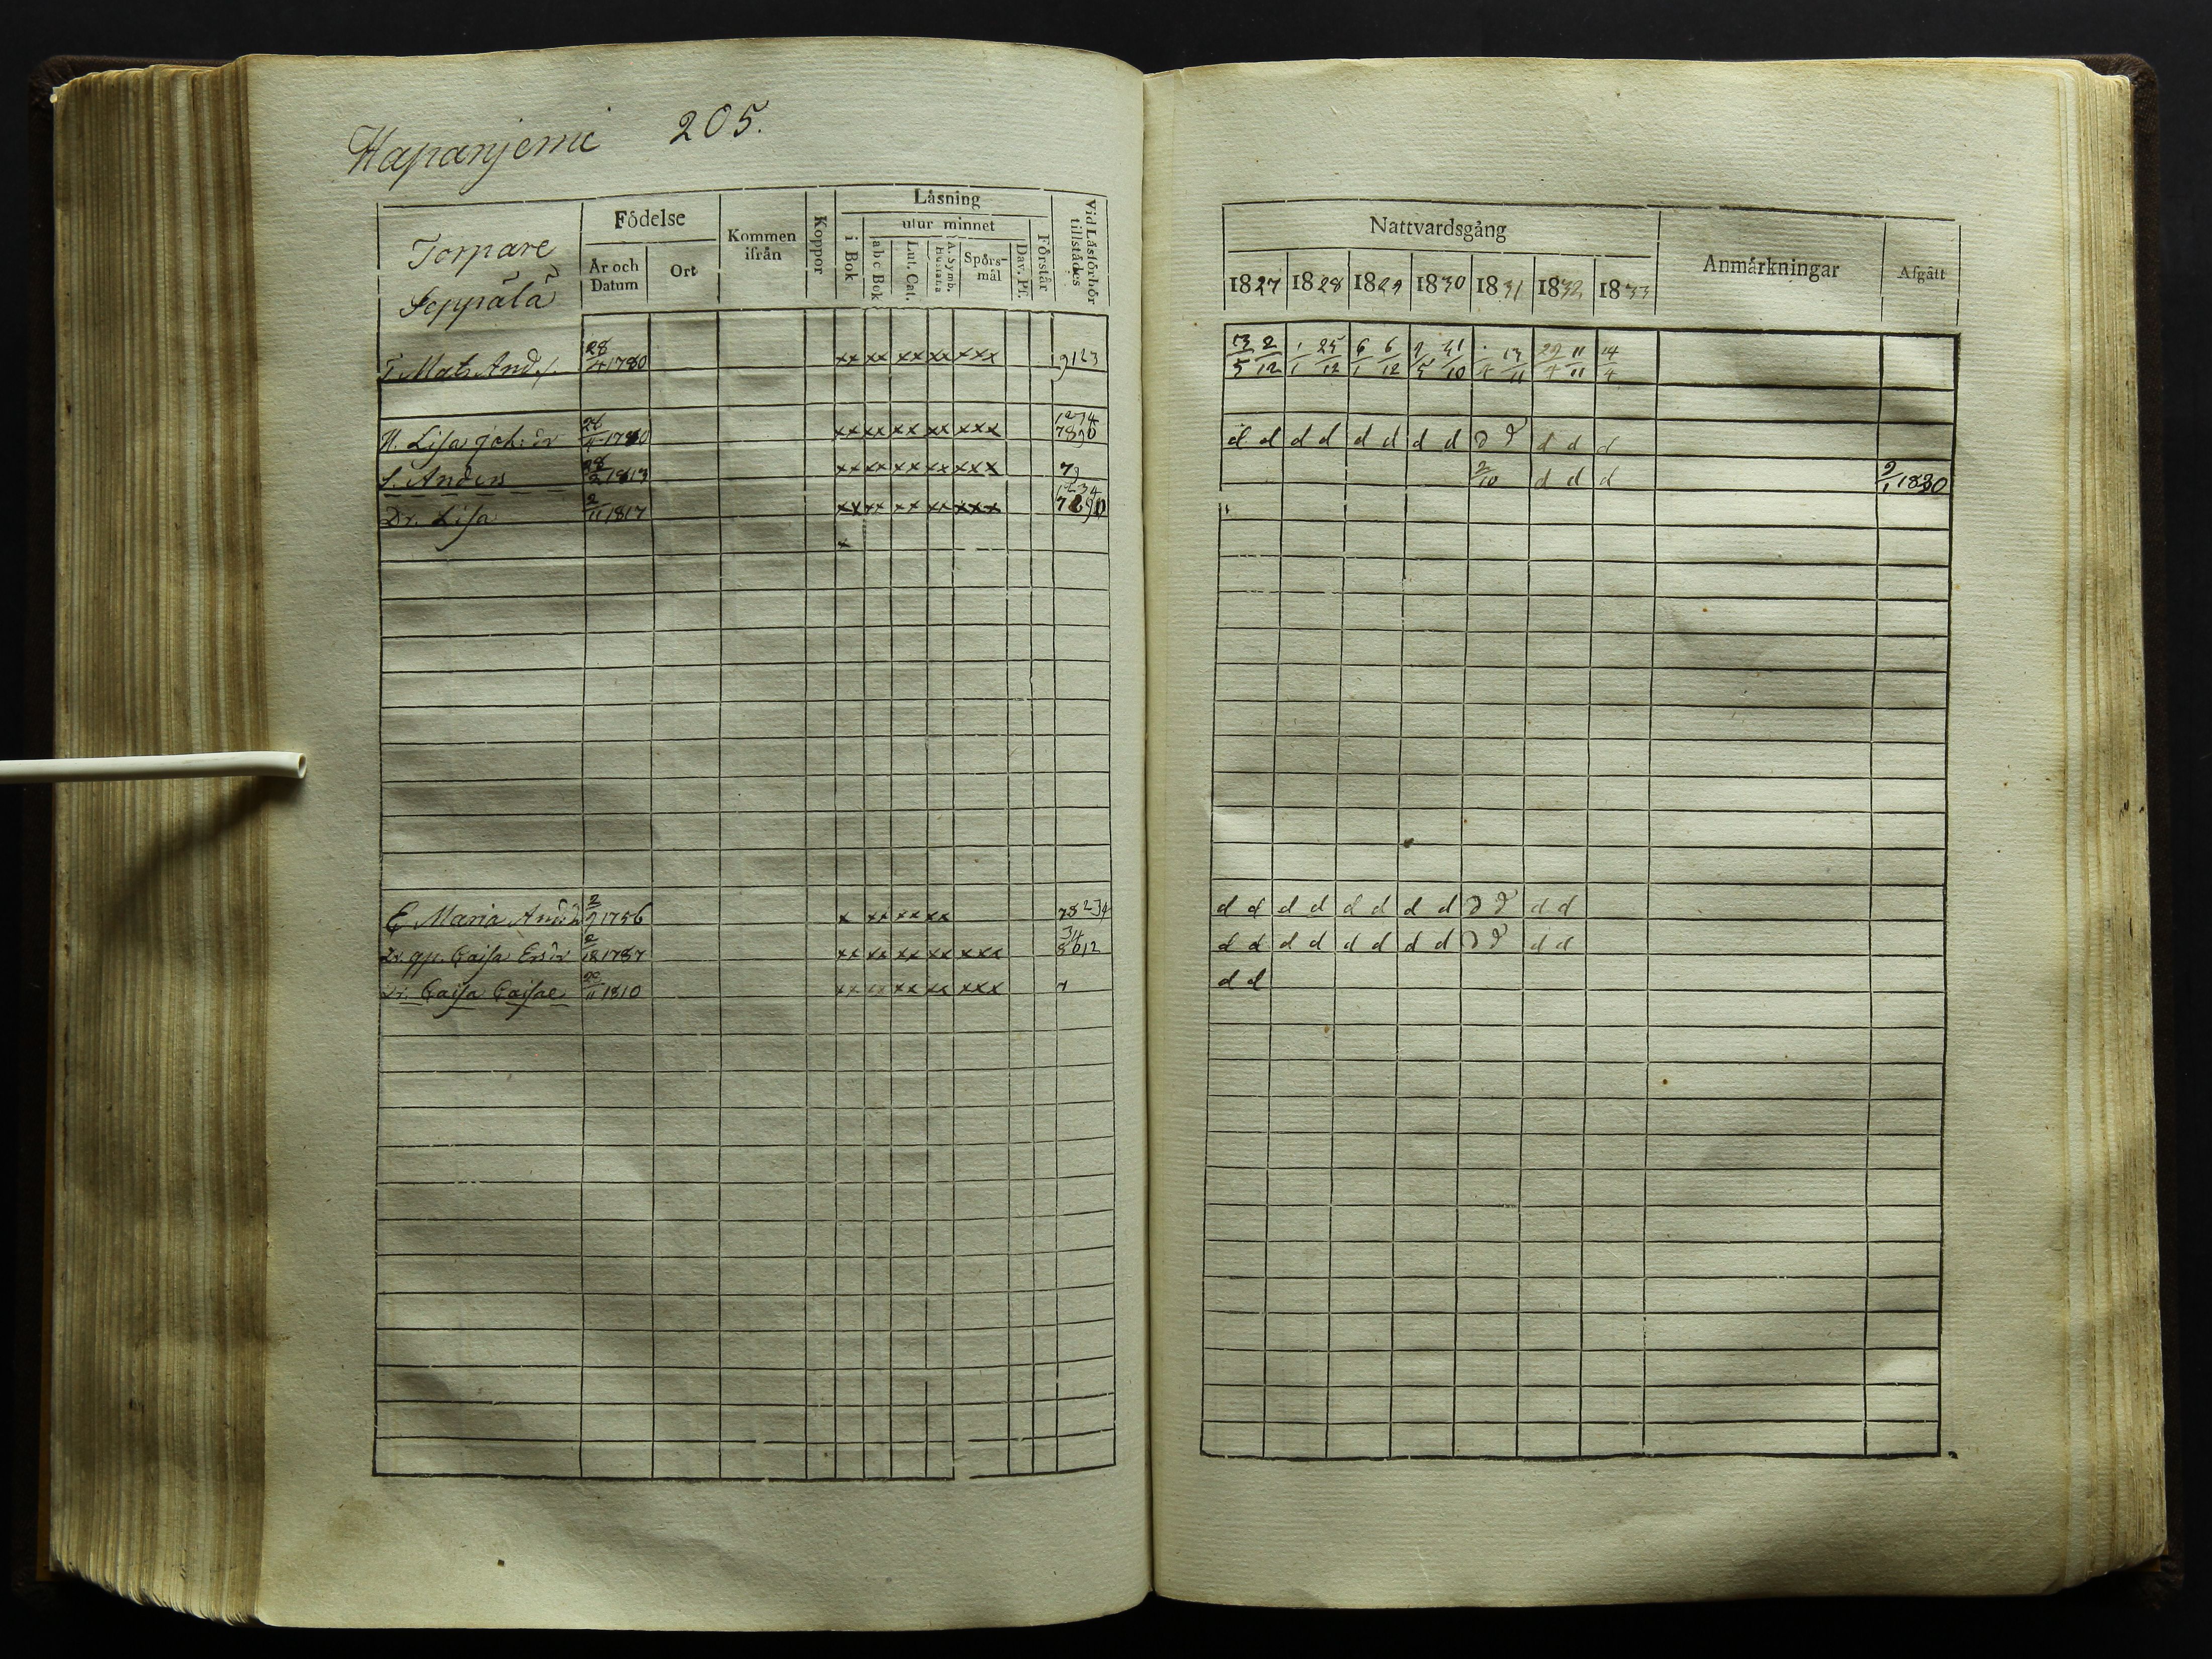 Hapanjemi 205.
Torpare
Seppälä
Födelse
År och Datum
Ort
Kommen ifrån
Koppor
Läsning
i Bok
utur minnet
abc Bok
Lut. Cat.
A. Symb.
Spörs-mål
Dav. Ps.
Förstår
Vid Läsförhör tillstädes
Nattvardsgång
1827 1828 1829 1830 1831 1832 1833
Anmärkningar
Afgått
T. Mats And. 28/4 1780 xx xx xx xx xxx 9123 13/5 2/12 1/1 25/12 6/1 6/12 9/5 31/10 13/11 29/4 11/11 14/4
H. Lisa Joh:dr 1780 xx xx xx xx xxx 1234 7890 d d d d d d d d d d d d d
S. Anders 28/2 1813 xx xx xx xx xxx 79 2/10 d d d 9/1 1830
Dr. Lisa 2/11 1817 xx xx xx xx xxx 1234
x
E. Maria 2/9 1756 x xx xx xx 78234 d d d d d d d d d d d d
Dr. Caisa Ersdr 2/12 1787 xx xx xx xx xxx 34 8012 d d d d d d d d d d d d
Dr. Caisa Caisae 20/11 1810 xx xx xx xx xxx 7 d d